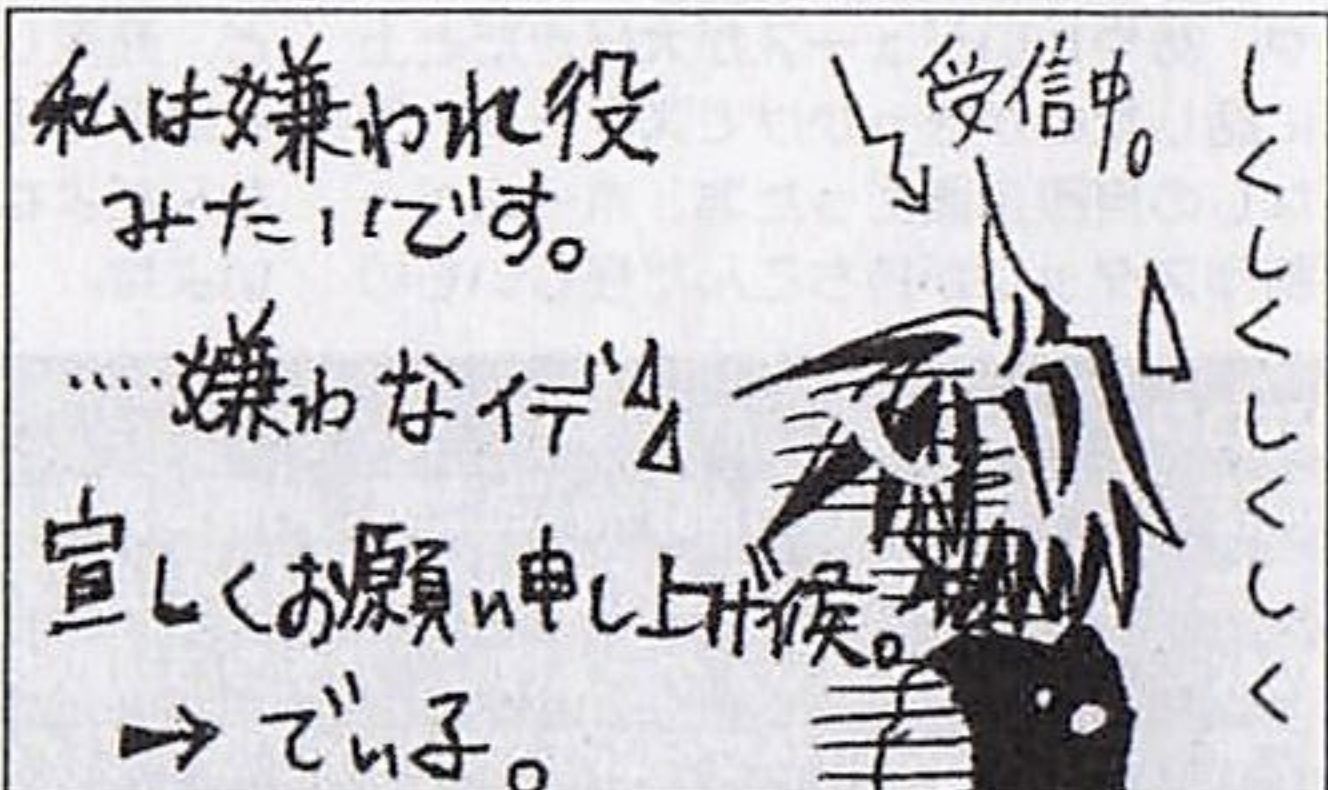 私は嫌われ役
みたいです。
....嫌わなイデ
宣しくお願い申し上げ候。
→でぃ子。
受信中。
しくしくしくしく